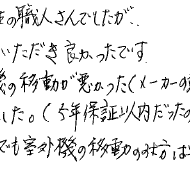 の職人さんでしたが、
いただき良かったです
後の移動が悪かった(メーカーの
した。(5年保証以内だったの
でも室外機の移動の仕方は